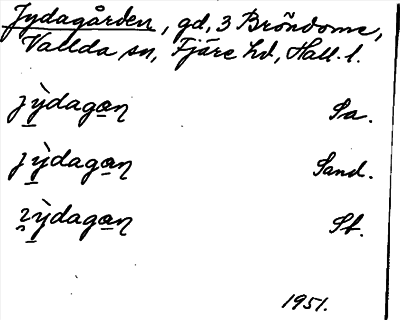 Jydagården, gd, 3 Bröndome,
Vallda sn, Fjäre hd, Hall. l.
jỳdagaɳ Sa.
jỳdagaɳ Sand.
ỳdagaɳ St.
1951.